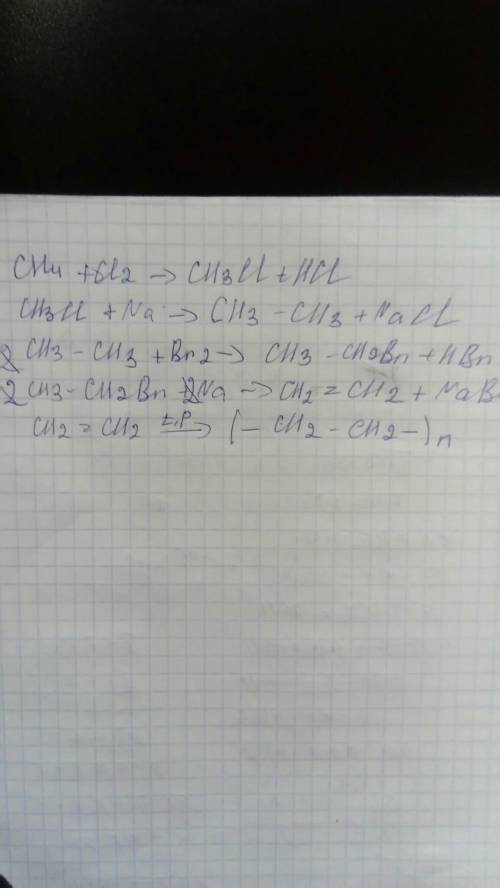 CH4 + Cl2 → CH3Cl + HCl
CH3Cl + Na → CH3 - CH3 + NaCl
CH3 - CH3 + Br2 → CH3 - CH2Br + HBr
2CH3 - CH2Br + 2Na → CH2 = CH2 + NaBr
CH2 = CH2 t,p → (- CH2 - CH2 -)n